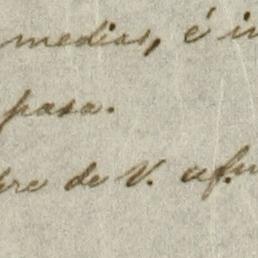 medias, é in
pasa.
bre de V. afm